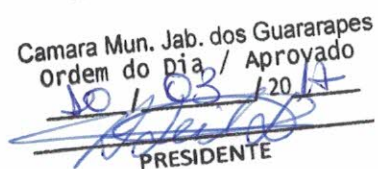 Camara Mun. Jab. dos Guararapes
Ordem do Dia / Aprovado
10 / 03 / 20 17
PRESIDENTE